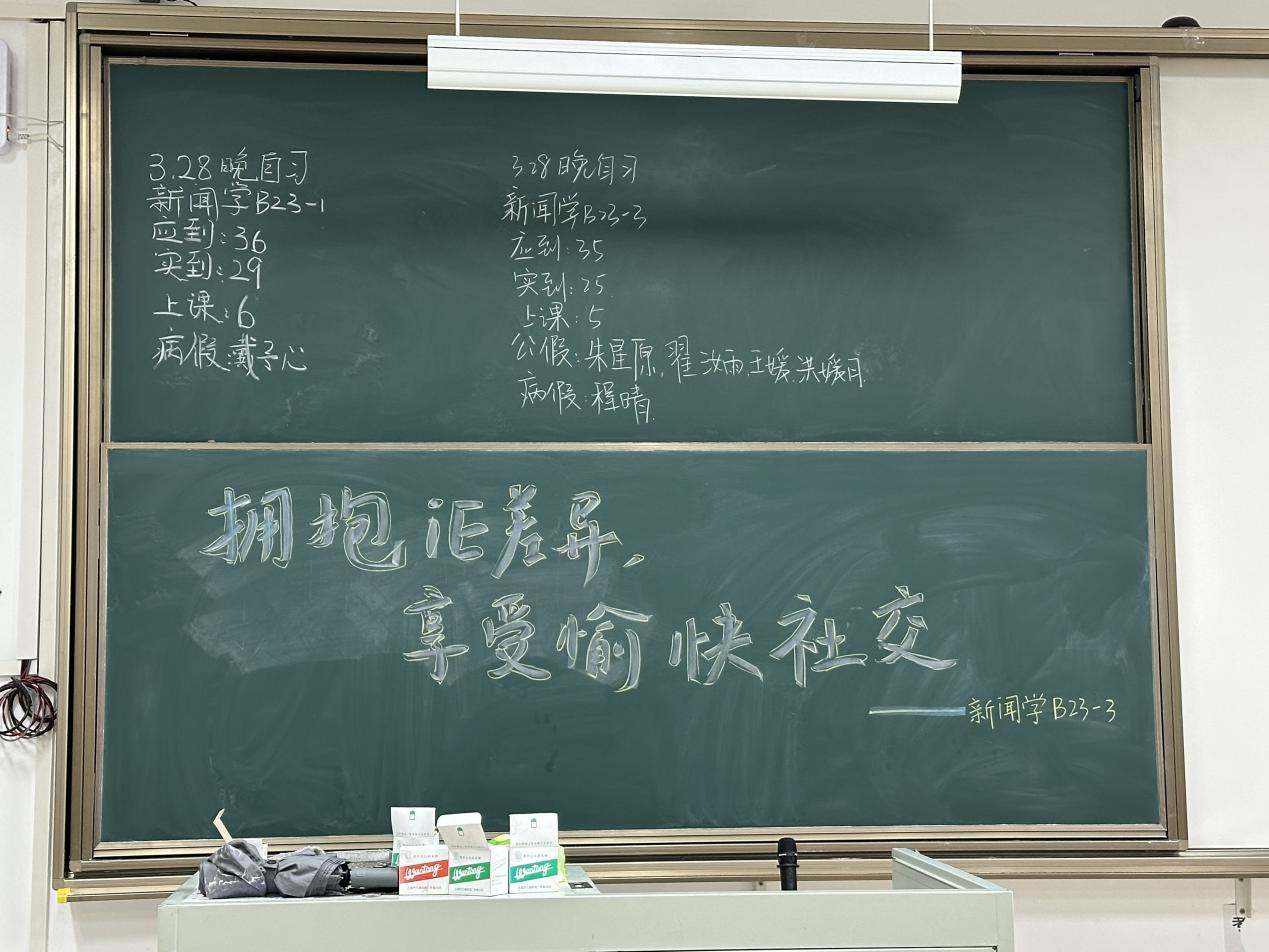 3.28晚自习
新闻学B23-1
应到:36
实到:29
上课:6
病假:戴予心
3.28晚自习
新闻学B23-3
应到:35
实到:25
上课:5
公假:朱星原,翟汝雨,王媛,洪媛月
病假:程晴
拥抱iE差异,
享受愉快社交
——新闻学B23-3
Wanting
Wanting
Wanting